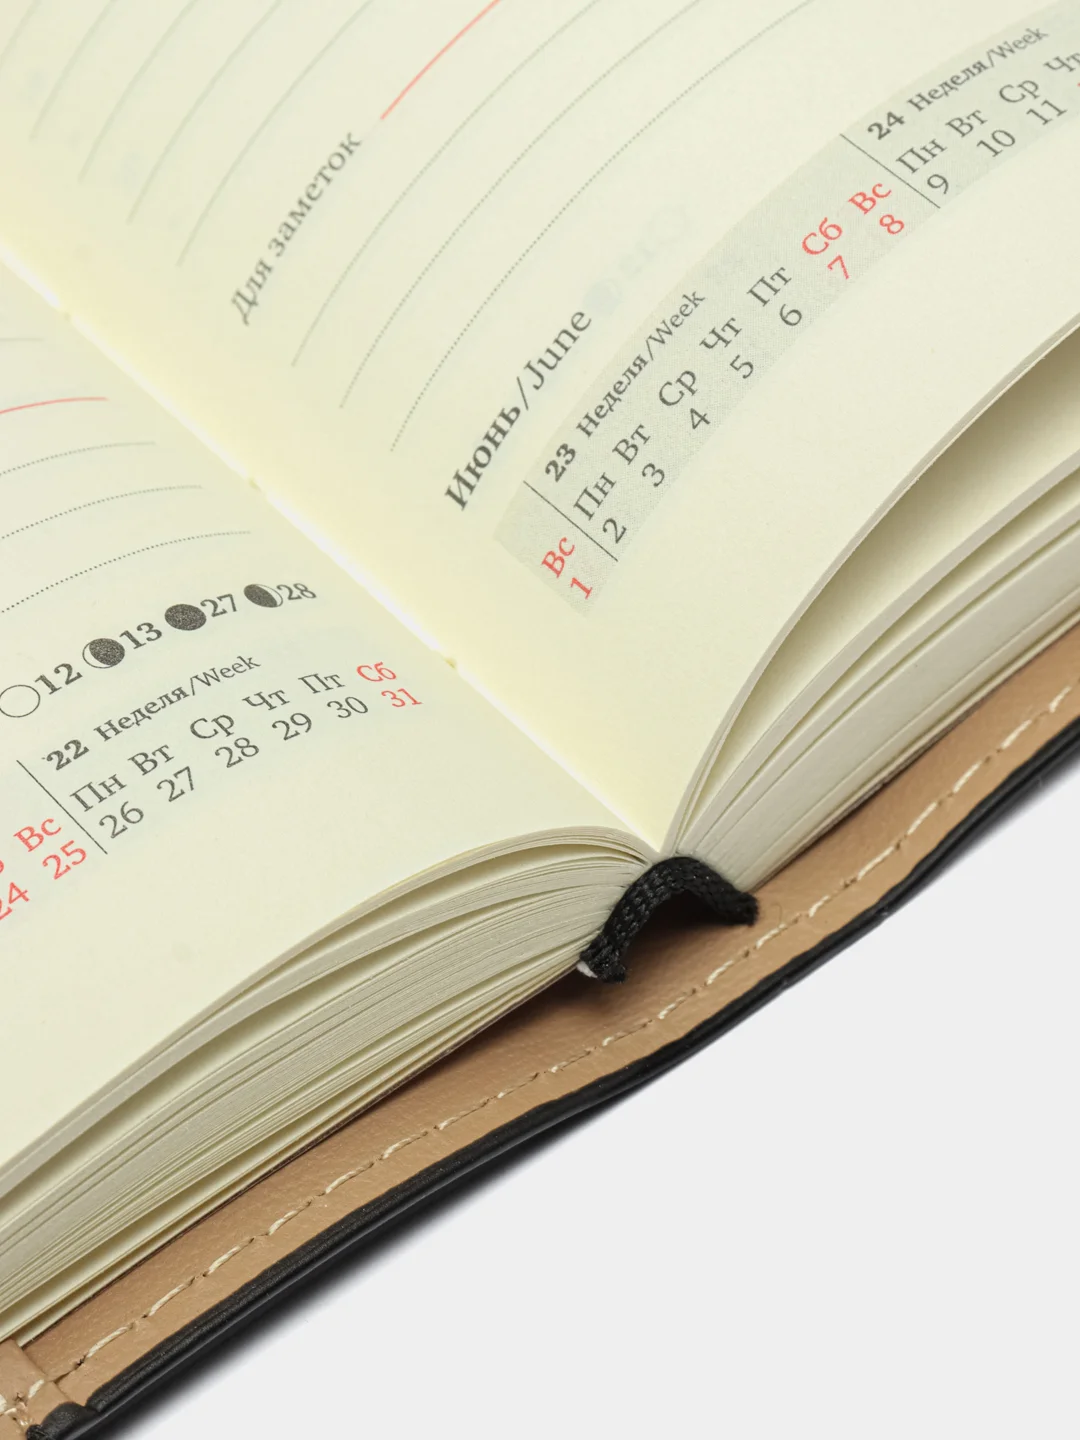 12 13 27 28
22 Неделя/Week
Вс Пн Вт Ср Чт Пт Сб
24 25 26 27 28 29 30 31
Для заметок
Июнь/June
23 Неделя/Week
24 Неделя/Week
Вс Пн Вт Ср Чт Пт Сб Вс Пн Вт Ср Чт
1 2 3 4 5 6 7 8 9 10 11